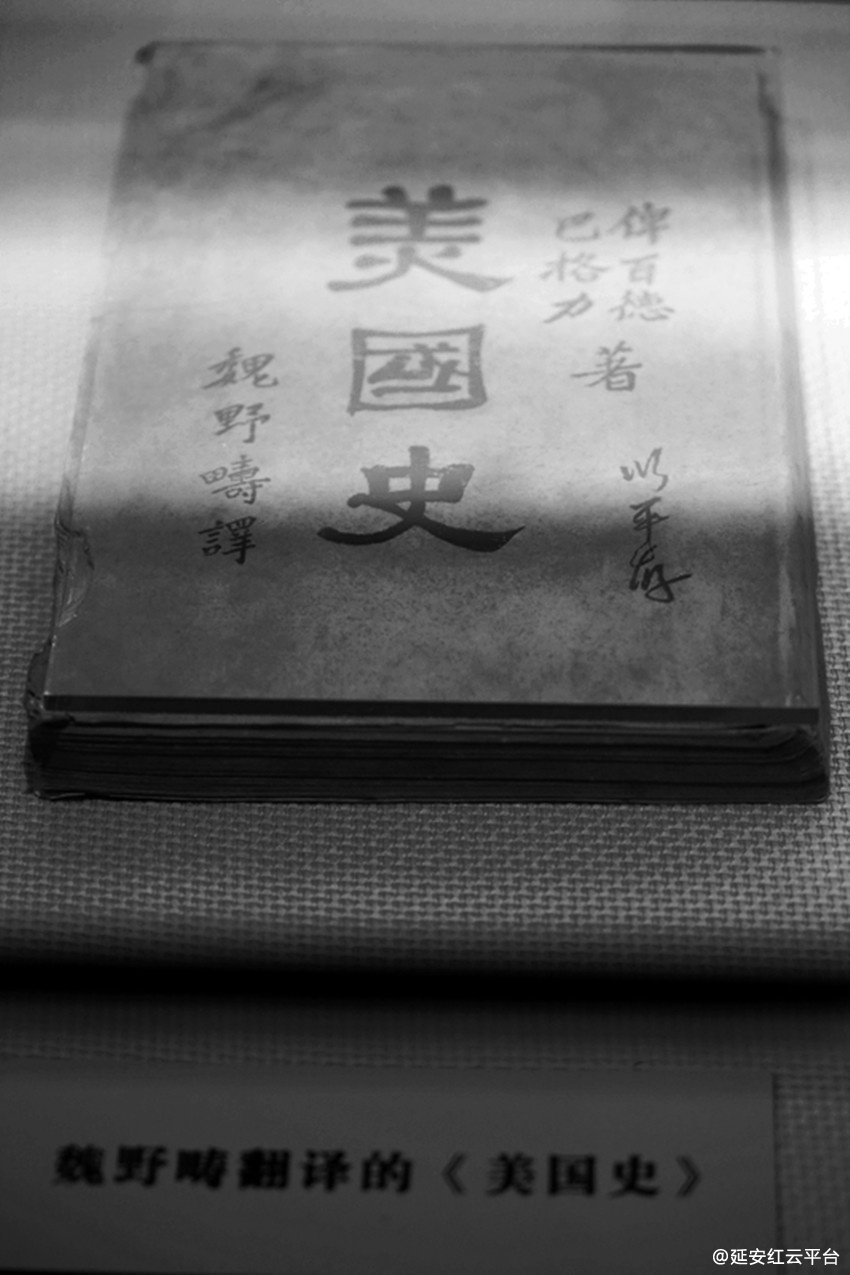 俾百德
巴格力
著
美國史
魏野疇譯
魏野畴翻译的《美国史》
@延安红云平台